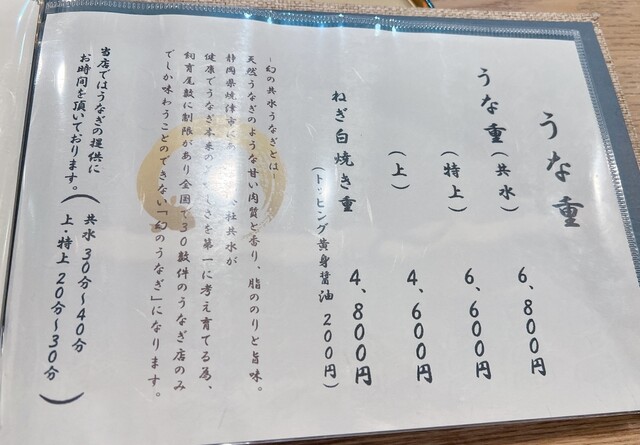 うな重
うな重（共水） 6,800円
（特上） 6,600円
（上） 4,600円
ねぎ白焼き重 4,800円
（トッピング黄身醤油 200円）
-幻の共水うなぎとは-
天然うなぎのような甘い肉質と香り、脂ののりと旨味。
静岡県焼津市にあ 社共水が
健康でうなぎ本来の しさを第一に考え育てる為、
飼育尾数に制限があり全国で30数件のうなぎ店のみ
でしか味わうことのできない「幻のうなぎ」になります。
当店ではうなぎの提供に
お時間を頂いております。
（共水 30分〜40分
上・特上 20分〜30分）